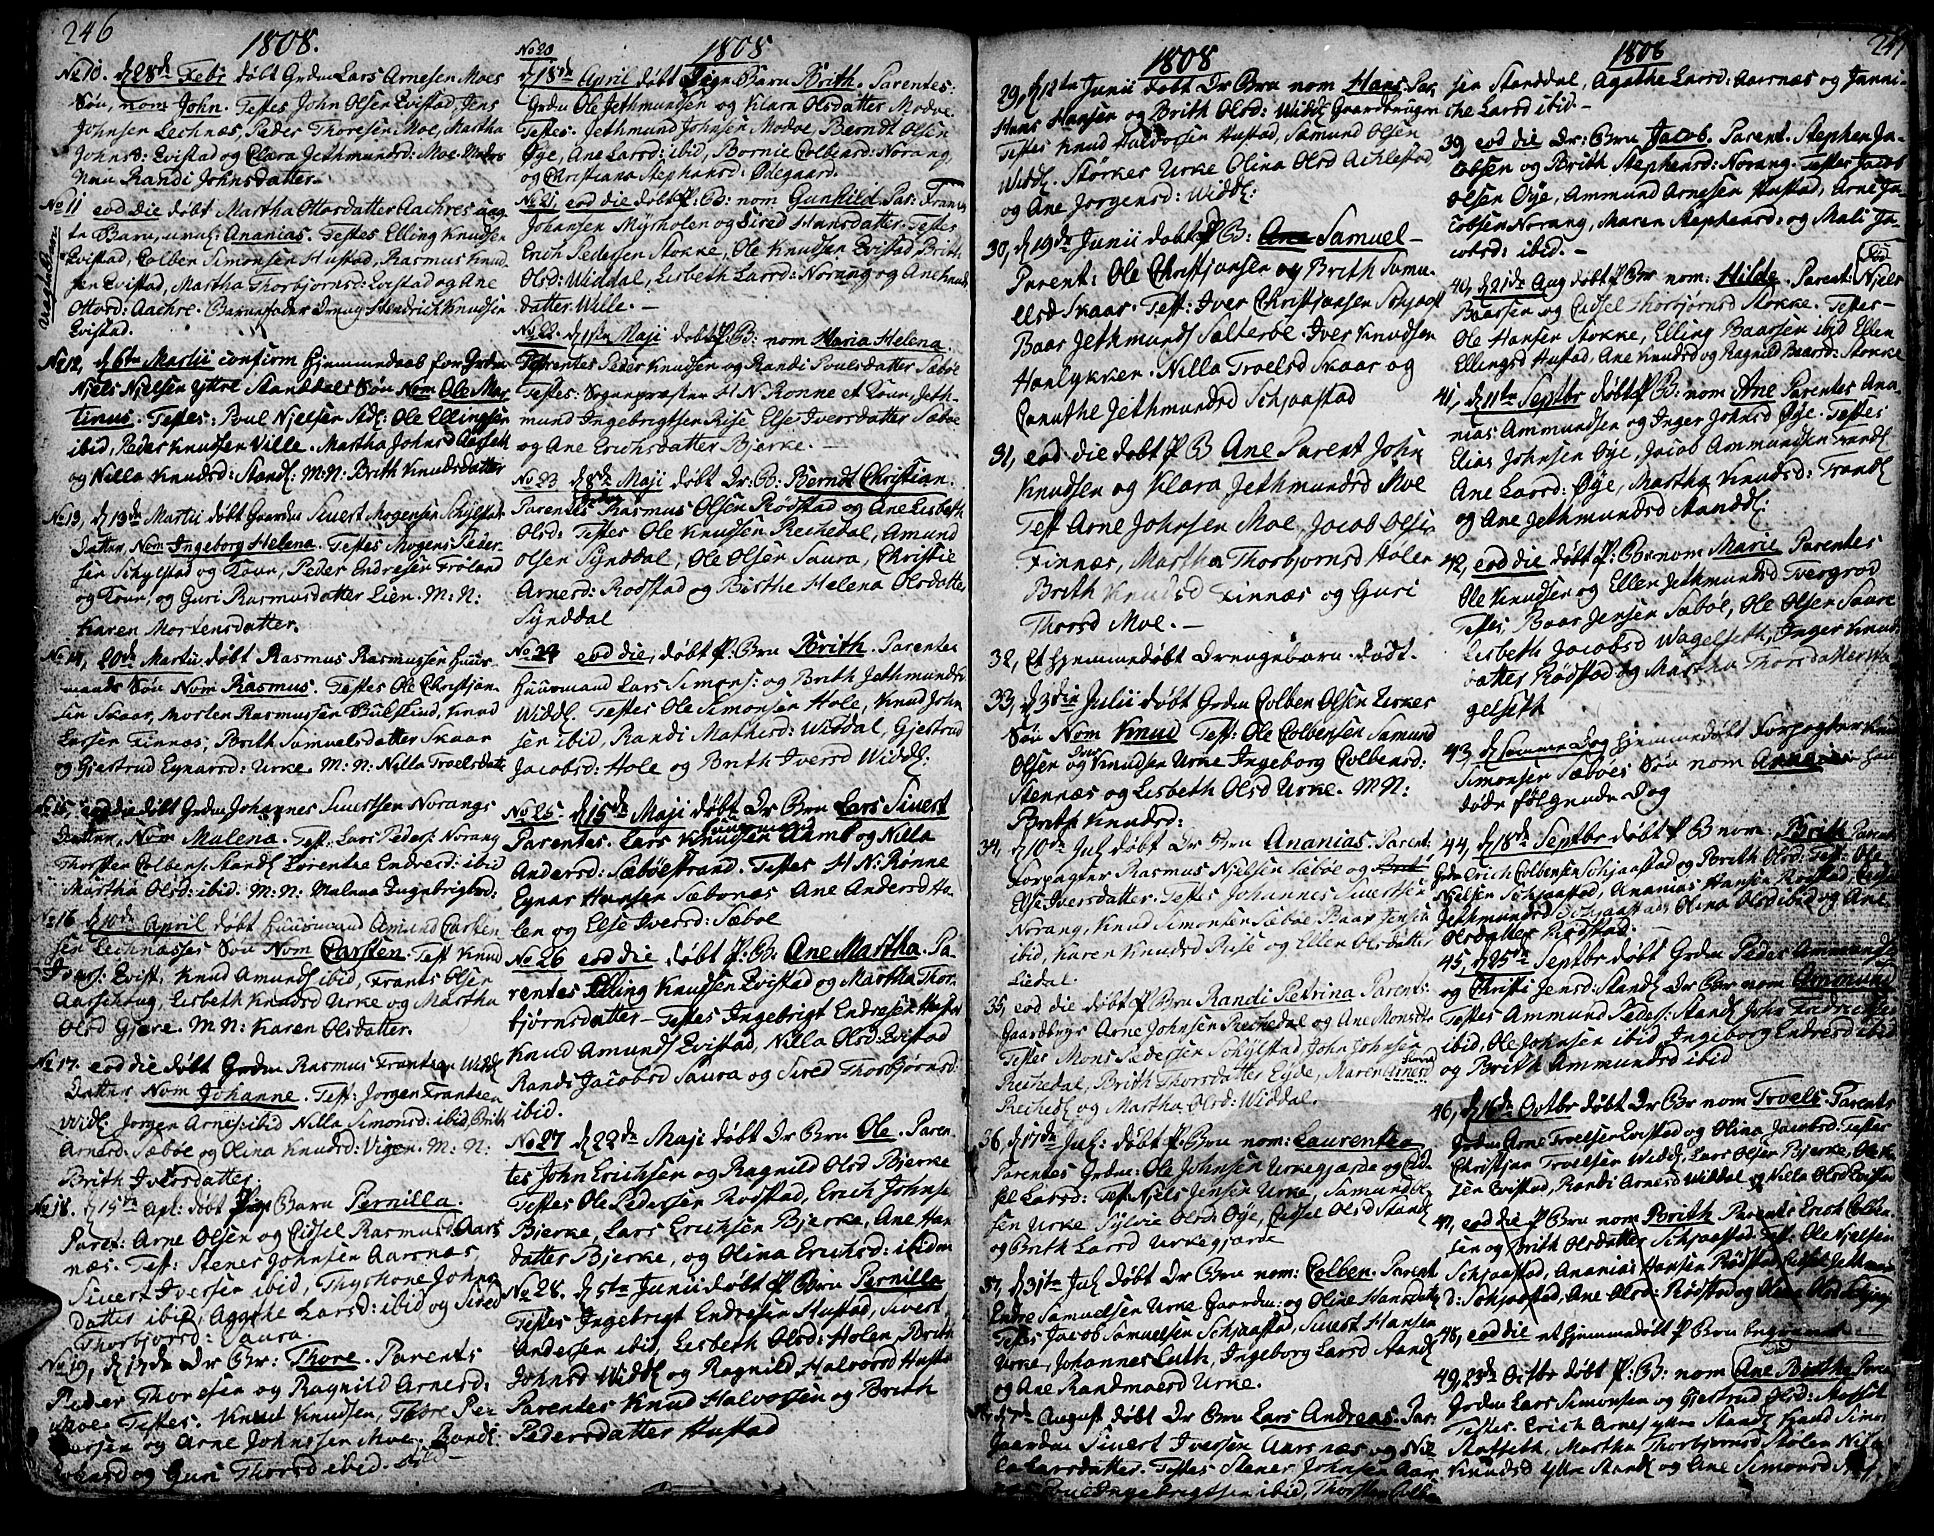 246
1808.
No 10. d 28de Febr døbt Grdm Lars Arnesen Moes
Søn, nom John. Testes John Olsen Evistad, Jens
Johnsen Lechnæs, Peder Thoresen Moe, Martha
Johnsd: Evistad og Clara Jethmundsd: Moe. Modrs
Nmn Randi Johnsdatter.
No 11 eod die døbt Martha Ottorsdatter Aachres uæg-
te Barn, Ananias. Testes Elling Knudsen
Evistad, Colben Simonsen Hustad, Rasmus Knud-
sen Evistad, Martha Thorbjørnsd: Evistad og Ane
Ottord: Aachre. Barnefader Dreng Hendrich Knudsen
Evistad.
No 12, d 6te Martii confirm Hjemmedaab for Grdm
Niels Njelsen Ytre Standdals Søn Nom Ole Mar-
tinus. Testes: Poul Njelsen Stdl: Ole Ellingsen
ibid, Peder Knudsen Ville. Martha Johnsd Aasseth
og Nilla Knudsd: Standl: M:N: Brith Knudsdatter
No 13, d 13de Martii døbt Gaardm Siuert Mogensen Schylstad
Datter, Nom Ingeborg Helena. Testes Mogens Peder-
sen Schylstad og Kone, Peder Endresen Frøland
og Kone, og Guri Rasmusdatter Lien. M:N:
Karen Mortensdatter.
No 14, 20de Martii døbt Rasmus Rasmussen Huus-
mands Søn Nom Rasmus. Testes Ole Christjan-
sen Skaar, Morten Rasmussen, Knud
Larsen Finnæs, Brith Samuelsdatter Skaar
og Gjertrud Eynarsd: Urke. M:N: Nilla Troelsdatt
No 15, eod die døbt Grdm Johannes Siuertsen Norangs
Datter, Nom Malena. Test. Lars Peders: Norang
Thorsten Colbens: Standl Lorentse Endresd: ibid
Martha Olsd: ibid: M:N: Malena Ingebrigtsd:
No 16 d 10de April døbt Huusmand Amund Carsten-
sen Lechnæsses Søn Nom Carsten. Test Knud
Ivers: Evist, Knud Amundl ibid, Frants Olsen
Aarschoug, Lisbeth Knudsd Urke og Martha
Olsd Gjere. M:N: Karen Olsdatter.
No 17. eod die døbt Grdm Rasmus Frantsen Widdl
Datter Nom Johanne. Test: Jorgen Frantsen
Widl: Jorgen Arnes: ibid Nilla Simonsd: ibid, Brith
Arnesd: Sæbøe og Olina Knudsd: Vigen: M:N:
Brith Iversdatter
No 18. d 15de Apl: døbt Pige Barn Pernilla.
Parent: Arne Olsen og Eidsel Rasmusd: Aars
næs. Test: Stener Johnsen Aarsnæs
Siuert Iversen ibid, Thyrhone Johns
datter ibid, Agathe Larsd: ibid og Sired
Thorbjørnsd: Saura.
No 19, d 17de Dr Br: Thore. Parents
Peder Thoresen og Ragnild Arnesd:
Moe. Testes. Knud Knudsen, Thore Pe-
dersen og Arne Johnssen Moe. Randi
og Guri Thorsd ibid.
1808
No 20
d 18de April døbt Pige Barn Brith. Parentes:
Grdm Ole Jethmundsen og Klara Olsdatter Modvæ
Testes: Jethmund Johnsen Modvæ Berndt Olsen
Øye, Ane Larsd: ibid, Bornie Colbensd: Norang
og Christiana Stephansd: Ødegaard.
No 21, eod die døbt P: B: nom Gunhild Par: Frants
Johansen Myrholen og Sired Hansdatter. Testes
Erich Pedersen Stokke, Ole Knudsen Evistad Brith
Olsd: Widdal, Lisbeth Larsd: Norang og Ane Knuds
datter Wille.
No 22. d 1ste Maji døbt P: B: nom Maria Helena.
Parentes Peder Knudsen og Randi Poulsdatter Sæbøe
Testes: Sogenpræsten H N Ronne et Kone, Jeth-
mund Ingebrigtsen Rise, Else Iversdatter Sæbøe
og Ane Erichsdatter Bjerke.
No 23 d 8de Maji døbt Dr: B: Berndt Christian.
Parentes Rasmus Olsen Rødstad og Ane Lisbeth
Olsd: Testes Ole Knudsen Reschedal, Amund
Olsen Synddal, Ole Olsen Saura, Christie
Arnesd: Rødstad og Birthe Helena Olsdatter
Synddal
No 24 eod die, døbt P: Brn Brith. Parenter
Huusmand Lars Simens: og Brith Jethmundsd
Widdl. Testes Ole Simonsen Hole, Knud John
sen ibid, Randi Mathesd: Widdal, Gjertrud
Jacobsd: Hole og Brith Iversd Widdl:
No 25 d 15de Maji døbt Dr Brn Lars Siuert
Parentes. Lars Knudsen og Nilla
Andersd: Sæbøestrand. Testes H N: Rønne
Eynar Hansen Sæbønæs Ane Andersd Ho-
len og Else Iversd: Sæbøe
No 26 eod die døbt P: B: Ane Martha. Pa-
rentes Elling Knudsen Evistad og Martha Thor-
bjørnsdatter — Testes Ingebrigt Endresen Hustad
Knud Amundl Evistad, Nilla Olsd: Evistad
Randi Jacobsd Saura og Sired Thorbjørnsd:
ibid.
No 27 d 22de Maji døbt Dr Brn Ole. Paren-
tes John Erichsen og Ragnild Olsd Bjerke
Testes Ole Pedersen Rodstad, Erich Johnse
Bjerke, Lars Erichsen Bjerke, Ane Han
datter Bjerke, og Olina Erichsd: ibidm
No 28. d 5te Junii døbt P Brn Pernilla
Testes Ingebrigt Endresen Hustad, Sivert
Andersen ibid, Lisbeth Olsd: Holen, Brith
Johnsd Widdl og Ragnild Halvorsd Hustad
Parentes Knud Halvorsen og Brith
Pedersdatter Hustad
1808
29, d 12te Junii døbt Dr Brn nom Hans. Par
Hans Hansen og Brith Olsd: Widdl Gaardbruger
Testes Knud Haldorsen Hustad, Samund Olsen
Widdl. Størker Urke Olina Olsd Achlestad
og Ane Jorgensd: Widdl:
30, d 19de Junii døbt P B: Samuel —
Parent: Ole Christjansen og Brith Samu-
elsd Skaar: Test: Iver Christjansen Schjaast
Baar Jethmundl Sæterbø: Iver Knudsen
Haalykken. Nilla Troelsd Skaar og
Canuthe Jethmundsd Schjaastad
31, eod die døbt P B Ane Parent John
Knudsen og Klara Jethmundsd Moe
Test Arne Johnsen Moe, Jacob Olsen
Finnæs, Martha Thorbjornsd Holen
Brith Knudsd Finnæs og Guri
Thorsd Moe. —
32, Et hjemmedøbt Drengebarn. Dødt.
33, d 3die Julii døbt Grdm Colben Olsen Urkes
Søn Nom Knud Test: Ole Colbensen Samund
Olsen og Iver Knudsen Urke Ingeborg Colbensd:
Stennæs og Lisbeth Olsd Urke. M N:
Brith Knudsd:
34, d 10de Jul døbt Dr Brn Ananias. Parent:
Forpagter Rasmus Njelsen Sæbøe og
Else Iversdatter. Testes Johannes Siuertsen
Norang, Knud Simonsen Sæbøe Baar Jensen
ibid, Karen Knudsd Rise og Ellen Olsdatter
Liedal.
35, eod die døbt P Brn Randi Petrina Parents.
Gaardbrgs Arne Johnsen Reschedal og Ane Monsdtr
Testes Mons Pedersen Schylstad, John Johnsen
Reschedal, Brith Thorsdatter Eyde, Maren Arnesd
Reschedl og Martha Olsd: Widdal.
36, d 17de Jul: døbt P: Brn nom: Laurentza
Parentes Grdm: Ole Johnsen Urkegjærde og Eid-
sel Larsd: Test: Njels Jensen Urke, Samund Ol
sen Urke Sylvie Olsd: Øye, Eidsel Olsd Standl
og Brith Larsd Urkegjærde
37, d 31te Jul døbt Dr Brn nom: Colben. Parent
Endre Samuelsen Urke Gaardm: og Oline Hansdatr
Testes Jacob Samuelsen Schjaastad, Siuert Hansen
Urke, Johannes Luth, Ingeborg Larsd Standl
og Ane Randmoersd Urke.
d 7de August døbt Dr Brn Lars Andreas. Par:
Gaardm Siuert Iversen Aarsnæs og Nil
la Larsdatter. Testes Stener Johnsen Aars
Poul Ingebrigtsen ibid, Thorsten Colbe
1808
247
sen Standdal, Agathe Larsd: Aarsnæs og Janni-
che Larsd ibid. —
39, eod die Dr: Brn Jacob. Parent. Stephen Ja-
cobsen og Brith Stephensd: Norang. Testes Jacob
Olsen Øye, Ammund Arnesen Hustad, Arne Ja-
cobsen Norang, Maren Stephensd: og Mali Ja-
cobsd: ibid. —
40, d 21de Aug døbt P Br nom: Hilde. Parent: Njels
Baarsen og Eidsel Thorbjørnsd Stokke. Testes —
Ole Hansen Stokke, Elling Baarsen ibid Ellen
Ellingsd Hustad, Ane Knudsd og Ragnild Baarsd: Stokke
41, d 11te Septbr døbt P B: nom Ane Parentes Ana
nias Ammundsen og Inger Johnsd Øye. Testes
Elias Johnsen Øye, Jacob Ammundsen Standl
Ane Larsd: Øye, Martha Knudsd: Standl
og Ane Jethmundsd Standdl:
42, eod die døbt P: Br: nom Marie Parentes
Ole Knudsen og Ellen Jethmundsd Tvergrod
Testes Baar Jensen Sæbøe, Ole Olsen Saure
Lisbeth Jacobsd Wagelseth, Inger Knuds
datter Rødstad og Martha Thorsdatter Wa
gelseth
43, d samme Dag hjemmedøbt Forpagter Knud
Simonsen Sæbøes Søn nom
døde følgende Dag
44, d 18de Septbr døbt P B nom Brith Parent:
Grdm Erich Colbensen Schjaastad og Brith Olsd: Test: Ole
Njelsen Schjaastad, Ananias Hansen Rødstad,
Jethmundsd Schjaastad, Olina Olsd ibid og Ane
Olsdatter Rødstad. —
45, d 25de Septbr døbt Grdm Peder Ammundsen
og Christi Jensd: Standl Dr Br nom Ammund
Testes Ammund Peders: Standl John Endresen
ibid, Ole Johnsen ibid Ingeborg Endresd ibid
og Brith Ammundsd ibid
46, d 16de Octbr døbt Dr Br nom Troels. Parents
Grdm Arne Troelsen Evistad og Olina Jacobsd: Testes
Christjan Troelsen Widdl, Lars Olsen Bjerke, Ole
sen Evistad, Randi Arnesd Widdal og Nilla Olsd Evistad
47, eod die P Brn nom Brith Parents Erich Colben
sen og Brith Olsdatter Schjaastad. Test: Ole Njelsen
Schjaastad, Ananias Hansen Rødstad, Eidsel Jethmun
d: Schjaastad, Ane Olsd: Rødstad og Olina Olsd
48, eod die et hjemmedøbt P Brn begravet —
49, 23de Octbr døbt P: B: nom Ane Birthe Paren
Grdm Lars Simonsen og Gjertrud Olsd:
Testes. Erich Arnes ytre Standl Knud Simon
Martha Thorbjornsd Stølen Nilla
Knudsd ytre Standl og Ane Simonsd